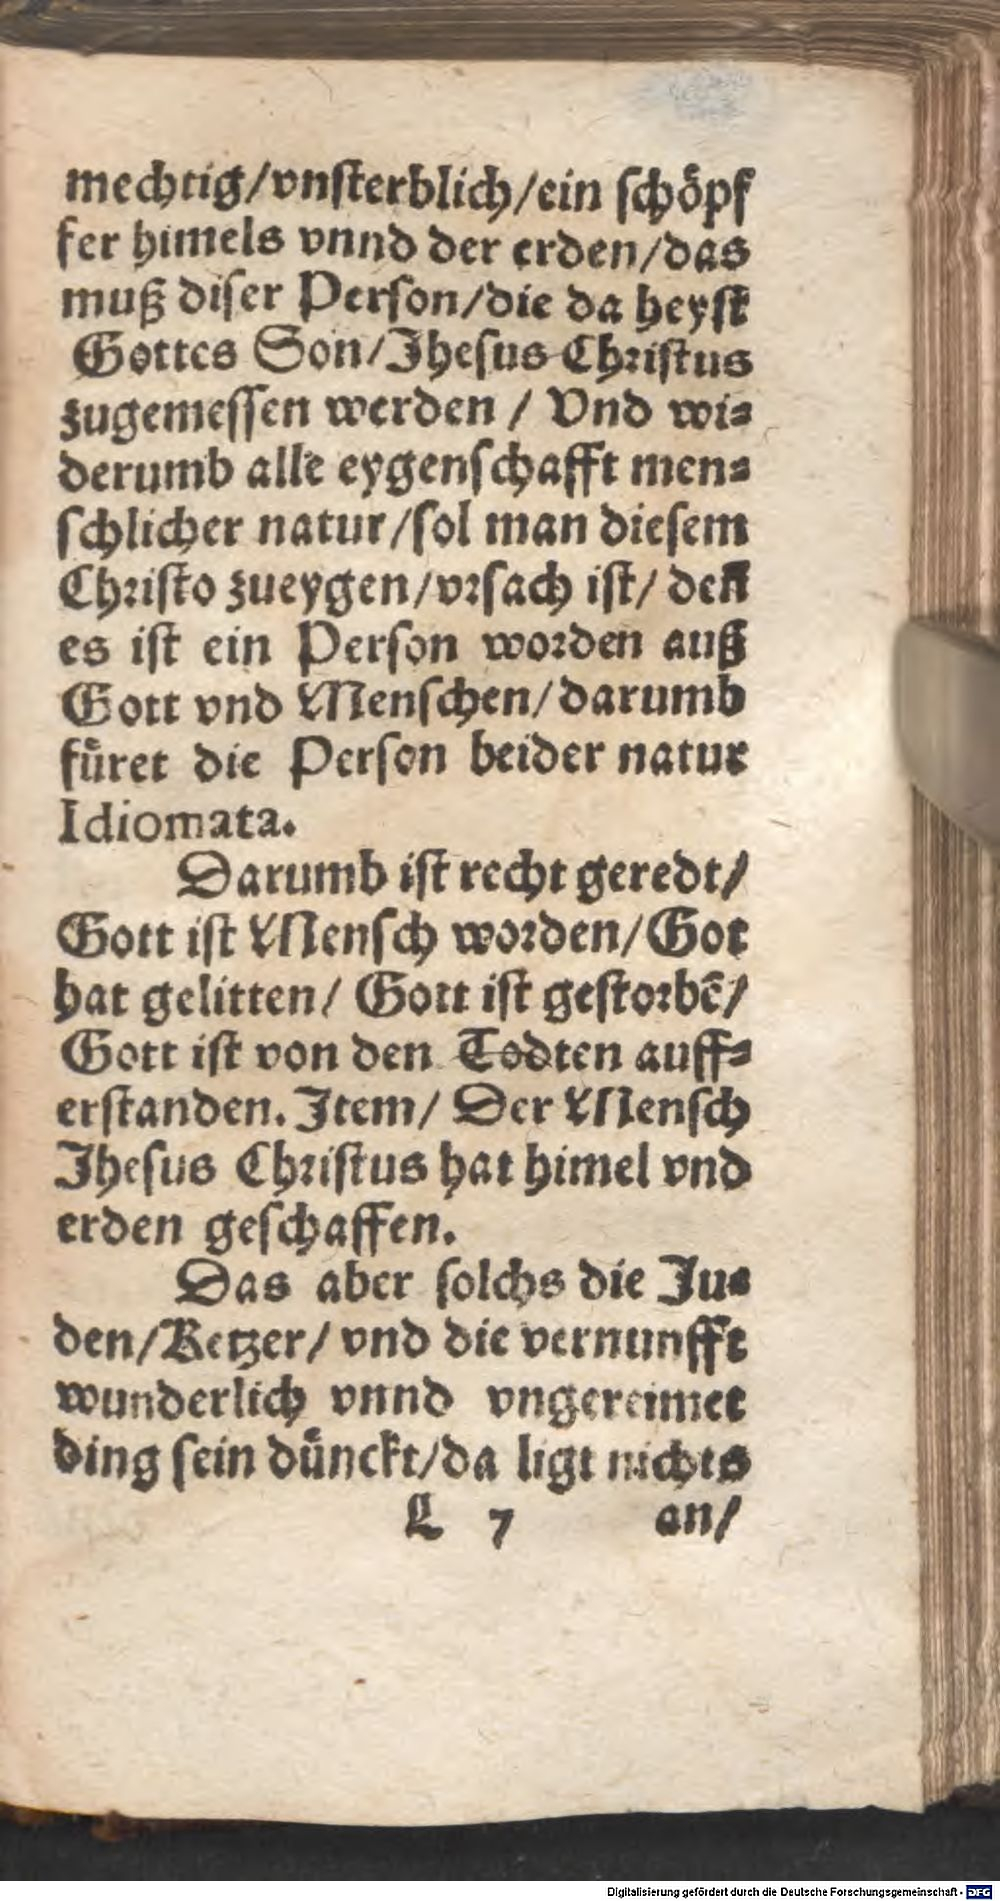 mechtig/vnſterblich/ein ſchöpf
fer himels vnnd der erden/das
muß diſer Perſon/die da heyſt
Gottes Son/Jheſus Chriſtus
zugemeſſen werden / Vnd wi⸗
derumb alle eygenſchafft men⸗
ſchlicher natur/ſol man dieſem
Chriſto zueygen/vrſach iſt/ den̄
es iſt ein Perſon worden auß
Gott vnd Menſchen/darumb
fuͤret die Perſon beider natur
Idiomata.
Darumb iſt recht geredt/
Gott iſt Menſch worden/Got
hat gelitten/ Gott iſt geſtorbē/
Gott iſt von den Todten auff⸗
erſtanden. Jtem/ Der Menſch
Jheſus Chriſtus hat himel vnd
erden geſchaffen.
Das aber ſolchs die Ju⸗
den/Ketzer/ vnd die vernunfft
wunderlich vnnd vngereimet
ding ſein duͤnckt/da ligt nichts
L 7 an/
Digitalisierung gefördert durch die Deutsche Forschungsgemeinschaft - DFG